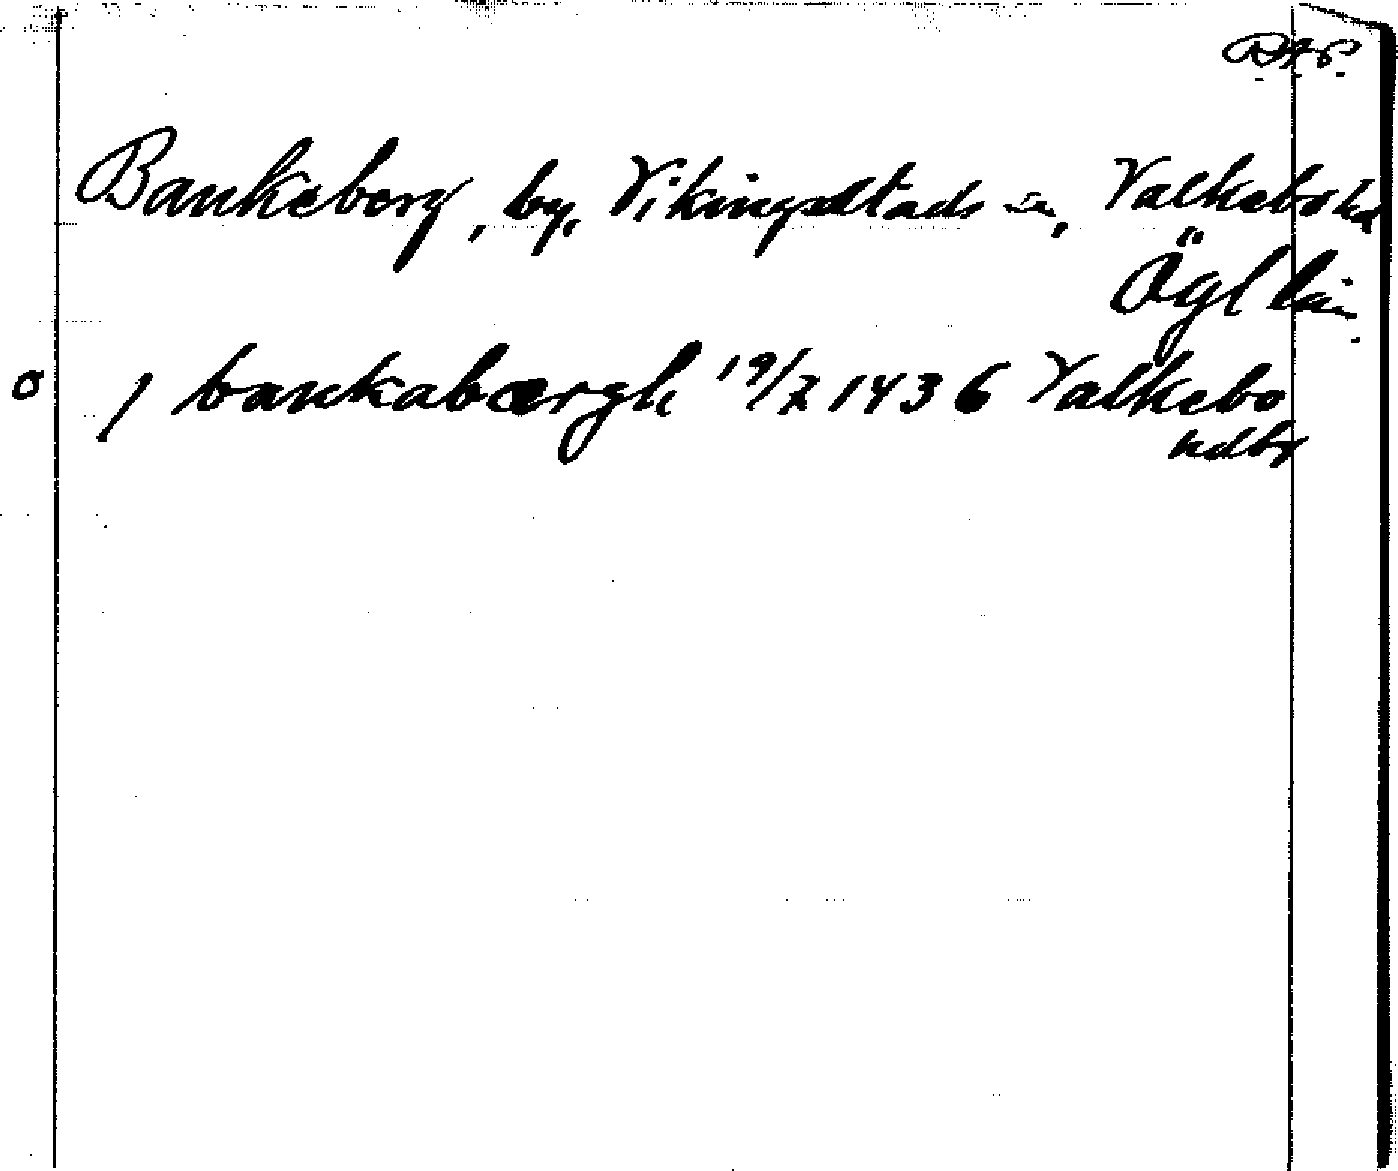 Bankeberg, by, Vikingstads sn, Valkebo hd
Ögl län
o / bankabærgh 19/7 1436 Valkebo
hdbr